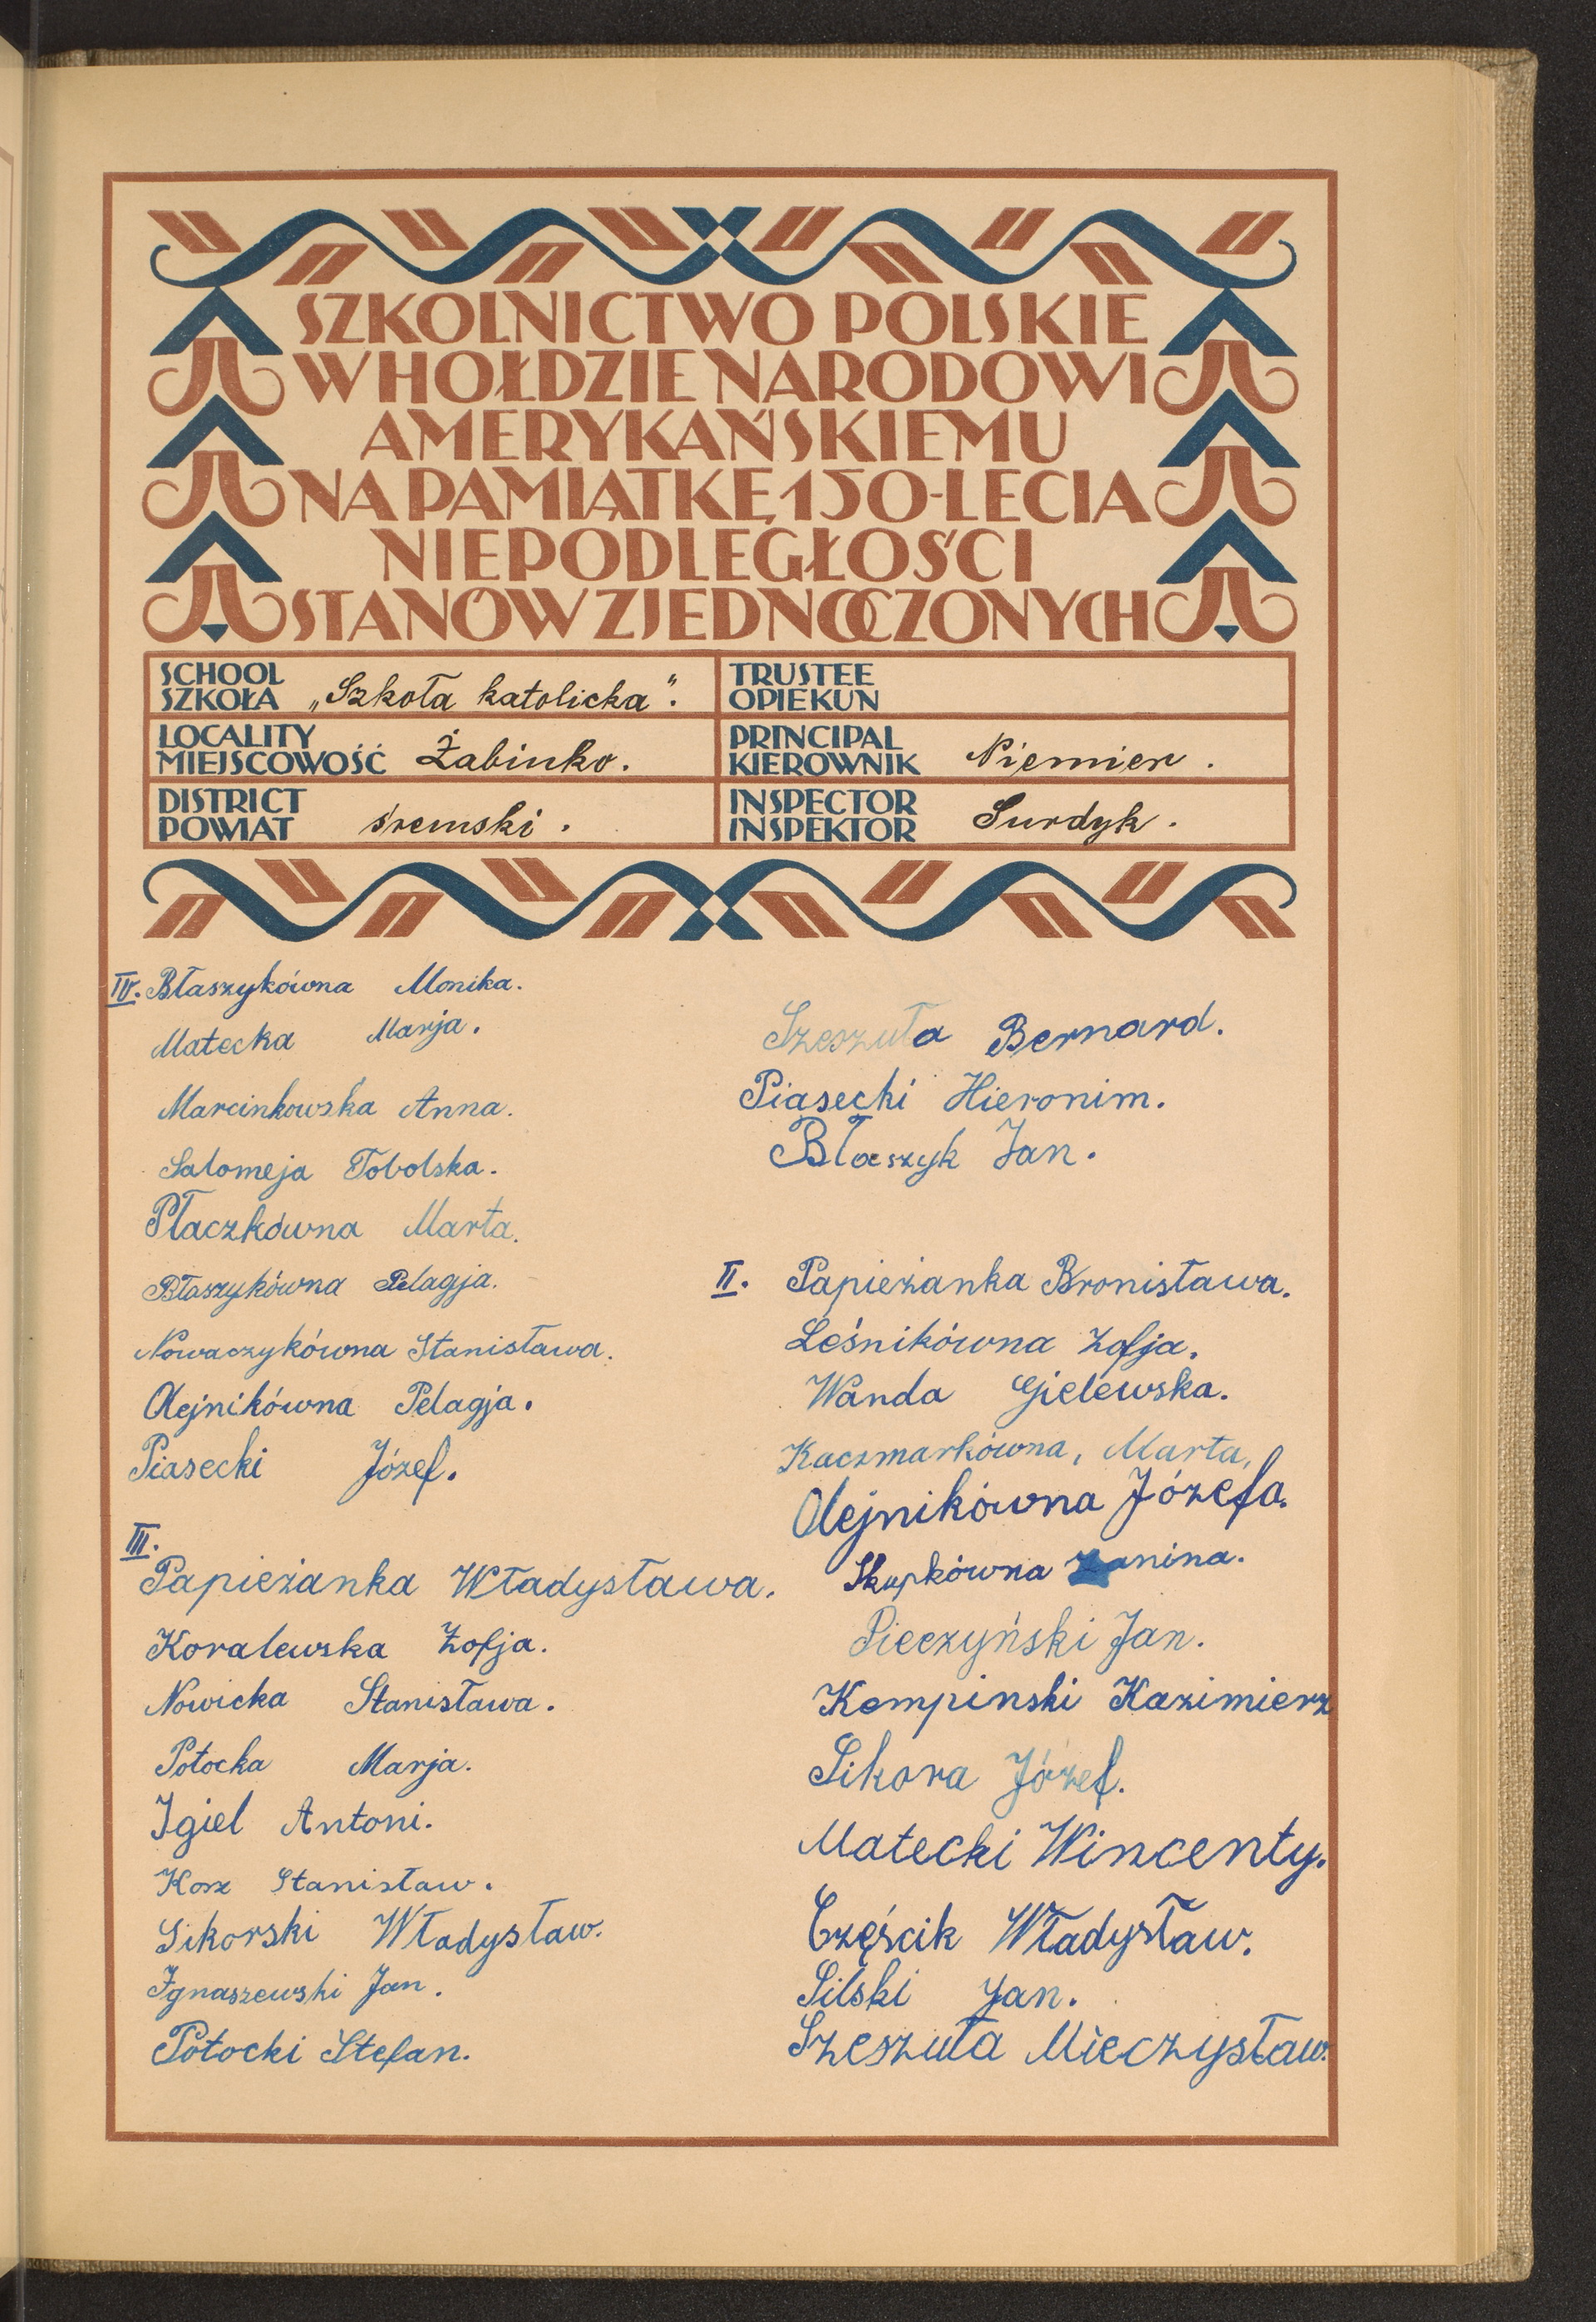 SZKOLNICTWO POLSKIE
W HOŁDZIE NARODOWI
AMERYKAŃSKIEMU
NA PAMIĄTKĘ 150-LECIA
NIEPODLEGŁOŚCI
STANÓW ZJEDNOCZONYCH
SCHOOL
SZKOŁA „Szkoła katolicka".
TRUSTEE
OPIEKUN
LOCALITY
MIEJSCOWOŚĆ Żabinko.
PRINCIPAL
KIEROWNIK Niemier.
DISTRICT
POWIAT śremski.
INSPECTOR
INSPEKTOR Surdyk.
IV. Błaszykówna Monika.
Matecka Marja.
Marcinkowska Anna.
Salomeja Tobolska.
Płaczkówna Marta.
Błaszykówna Pelagja.
Nowaczykówna Stanisława.
Olejnikówna Pelagja.
Piasecki Józef.
III.
Papieżanka Władysława.
Koralewska Zofja.
Nowicka Stanisława.
Potocka Marja.
Igiel Antoni.
Korz Stanisław.
Sikorski Władysław.
Ignaszewski Jan.
Potocki Stefan.
Szeszuła Bernard.
Piasecki Hieronim.
Błaszyk Jan.
II. Papieżanka Bronisława.
Leśnikówna Zofja.
Wanda Gielewska.
Kaczmarkówna, Marta,
Olejnikówna Józefa.
Skupkówna Janina.
Pieczyński Jan.
Kempinski Kazimierz
Sikora Józef.
Matecki Wincenty.
Częścik Władysław.
Silski Jan.
Szeszuła Mieczysław.